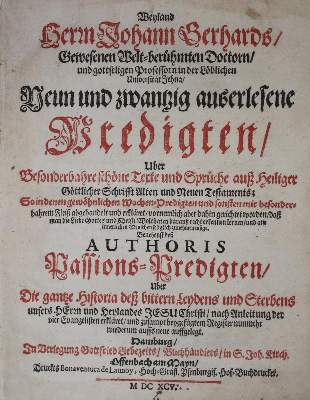 Weyland
Herrn Johann Gerhards/
Gewesenen Welt-berühmten Doctorn/
und gottseligen Professorn in der Löblichen
Universität Jehna/
Neun und zwantzig auserlesene
Predigten/
Uber
Besonderbahre schöne Texte und Sprüche auß Heiliger
Göttlicher Schrifft Alten und Neuen Testaments;
So in denen gewöhnlichen Wochen-Predigten und sonsten mit besonder-
bahrem Fleiß abgehandelt und erkläret/ vornemlich aber dahin gerichtet worden/ daß
man die
Benebenst des
AUTHORIS
Passions-Predigten/
Uber
Die gantze Historia deß bittern Leydens und Sterbens
unsers HErrn und Heylandes JESU Christi/ nach Anleitung der
vier Evangelisten erkläret/ und zusampt beygefügtem Register nunmehr
wiederum auffs neue auffgelegt.
Hamburg/
In Verlegung Gottfried Liebezeits/ Buchhändlers/ in S. Joh. Kirch.
Offenbach am Mayn/
Druckts Bonaventura de Launoy, Hoch-Gräfl. Ysenburgis. Hof-Buchdrucker.
M DC XCV.